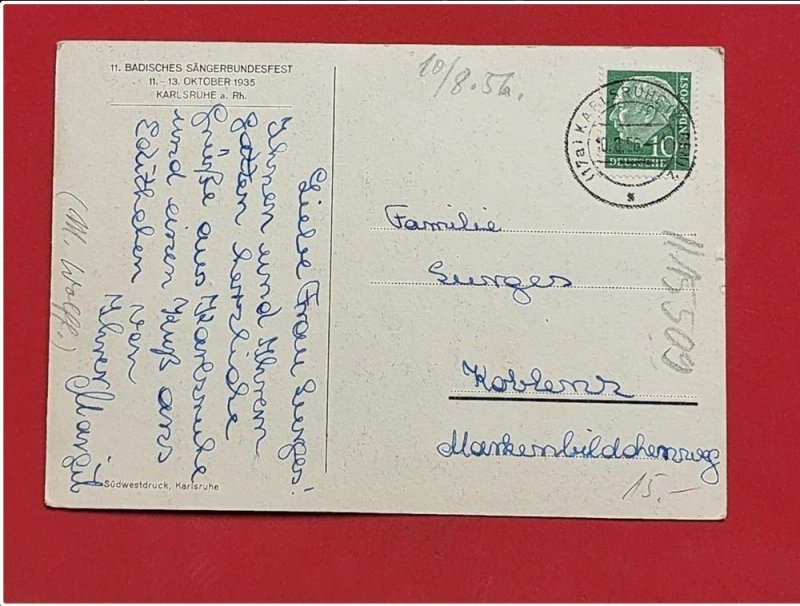 11. BADISCHES SÄNGERBUNDESFEST
11. – 13. OKTOBER 1935
KARLSRUHE a. Rh.
Liebe Frau Surges!
Ihnen und Ihrem
Gatten herzliche
Grüße aus Karlsruhe
und einen Kuß ans
Edithchen von
Ihrer Margit
(M. Wolff.)
Südwestdruck, Karlsruhe
10/8.56.
(17a) KARLSRUHE
10.8.56
s
z
DEUTSCHE BUNDESPOST
10
Familie
Surges
Koblenz
Markenbildchenweg
11/15509
15.–